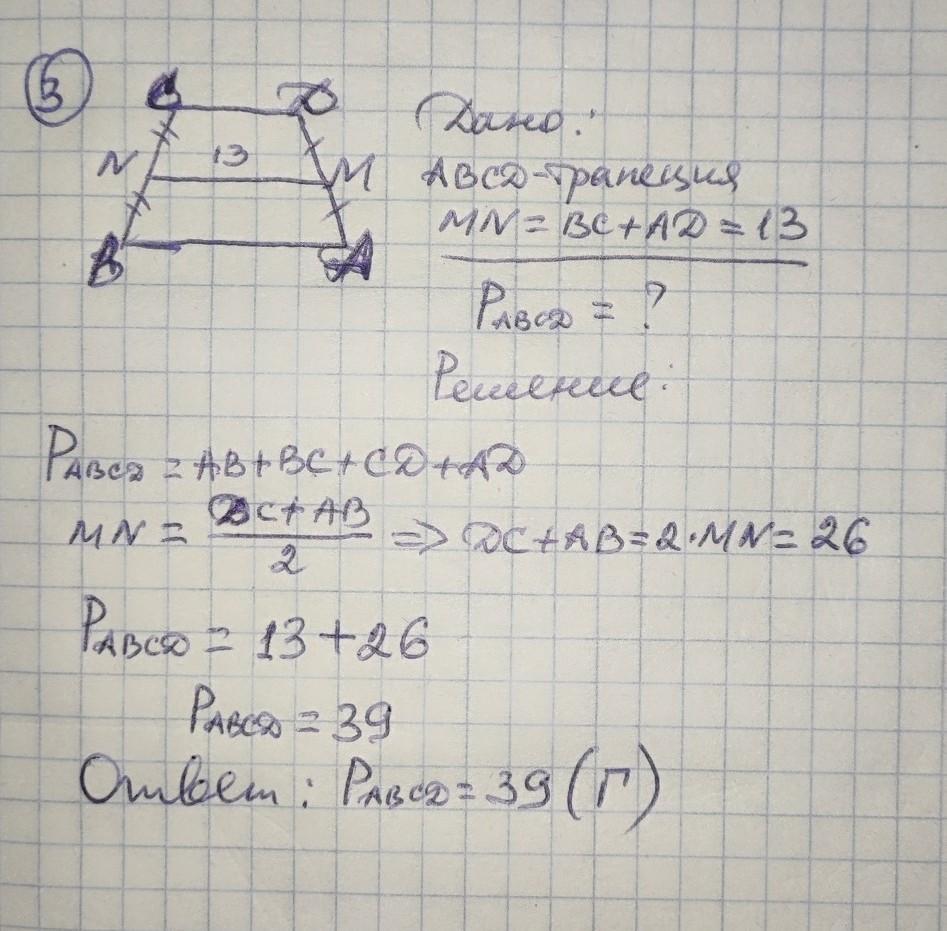 3
C D
N 13 M
B A
Дано:
ABCD-трапеция
MN = BC + AD = 13
PABCD = ?
Решение:
PABCD = AB + BC + CD + AD
MN = DC + AB / 2 => DC + AB = 2·MN = 26
PABCD = 13 + 26
PABCD = 39
Ответ: PABCD = 39 (Г)